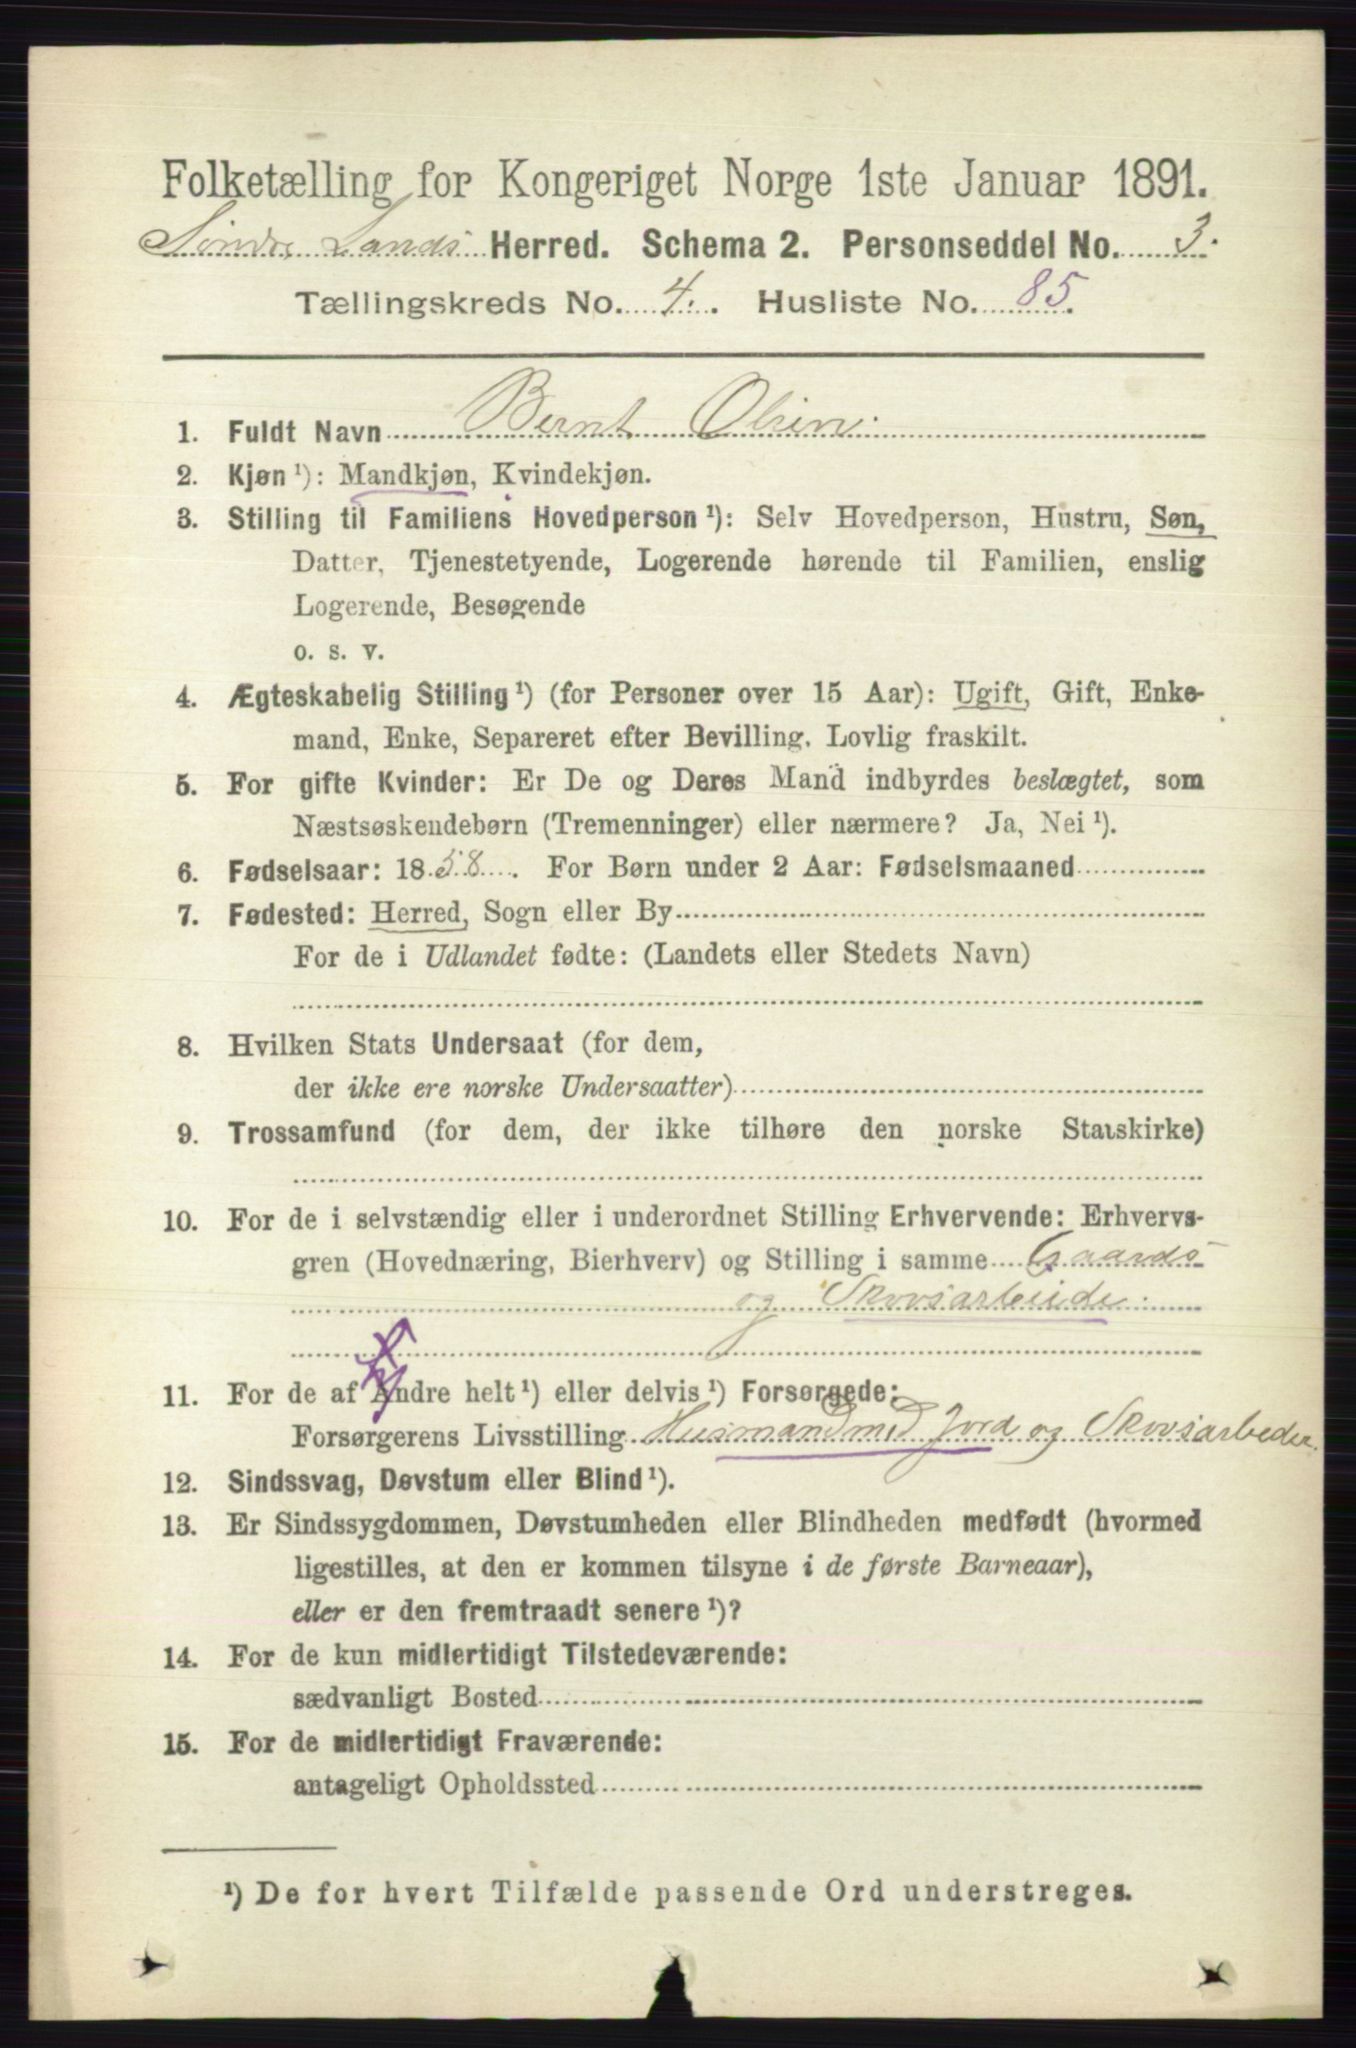 Folketælling for Kongeriget Norge 1ste Januar 1891.
Søndre Lands Herred. Schema 2. Personseddel No. 3.
Tællingskreds No. 4. Husliste No. 85.
1. Fuldt Navn Bernt Olsen.
2. Kjøn ¹): Mandkjøn, Kvindekjøn.
3. Stilling til Familiens Hovedperson ¹): Selv Hovedperson, Hustru, Søn,
Datter, Tjenestetyende, Logerende hørende til Familien, enslig
Logerende, Besøgende
o. s. v.
4. Ægteskabelig Stilling ¹) (for Personer over 15 Aar): Ugift, Gift, Enke-
mand, Enke, Separeret efter Bevilling. Lovlig fraskilt.
5. For gifte Kvinder: Er De og Deres Mand indbyrdes beslægtet, som
Næstsøskendebørn (Tremenninger) eller nærmere? Ja, Nei ¹).
6. Fødselsaar: 1858. For Børn under 2 Aar: Fødselsmaaned
7. Fødested: Herred, Sogn eller By
For de i Udlandet fødte: (Landets eller Stedets Navn)
8. Hvilken Stats Undersaat (for dem,
der ikke ere norske Undersaatter)
9. Trossamfund (for dem, der ikke tilhøre den norske Statskirke)
10. For de i selvstændig eller i underordnet Stilling Erhvervende: Erhvervs-
gren (Hovednæring, Bierhverv) og Stilling i samme Gaards-
og Skovsarbeide.
11. For de af Andre helt ¹) eller delvis ¹) Forsørgede:
Forsørgerens Livsstilling Husmand med Jord og Skovsarbeder.
12. Sindssvag, Døvstum eller Blind ¹).
13. Er Sindssygdommen, Døvstumheden eller Blindheden medfødt (hvormed
ligestilles, at den er kommen tilsyne i de første Barneaar),
eller er den fremtraadt senere ¹)?
14. For de kun midlertidigt Tilstedeværende:
sædvanligt Bosted
15. For de midlertidigt Fraværende:
antageligt Opholdssted
¹) De for hvert Tilfælde passende Ord understreges.